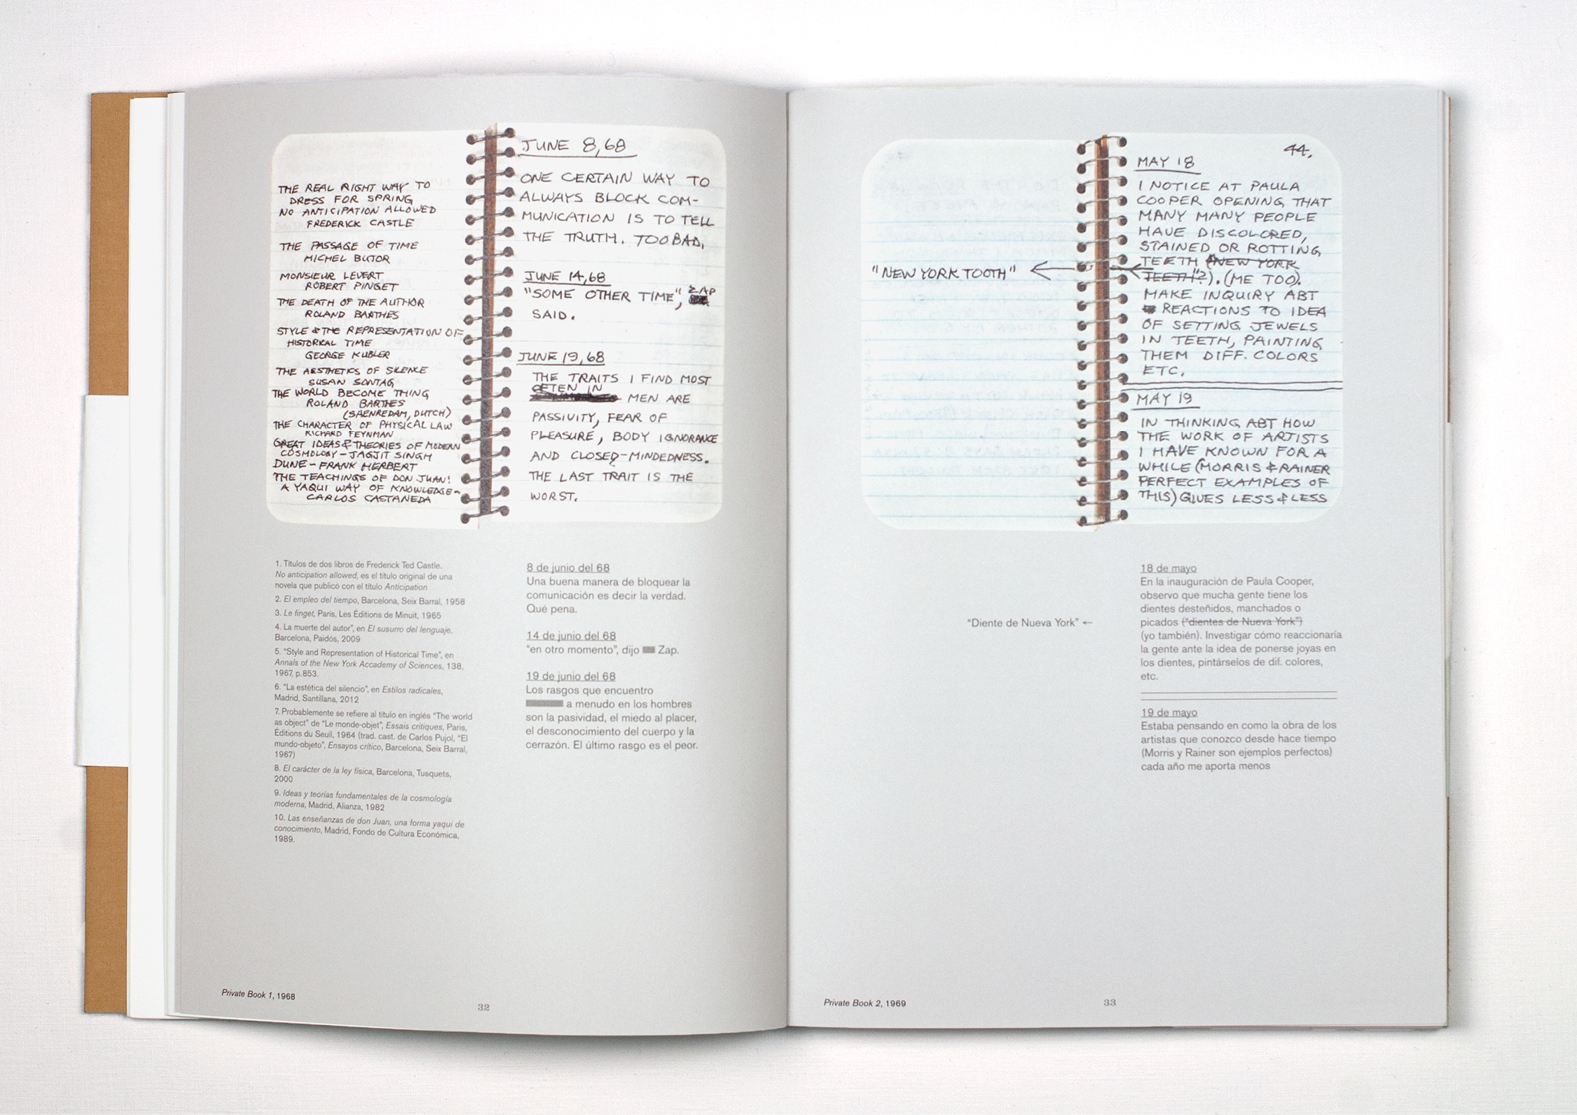 THE REAL RIGHT WAY TO
DRESS FOR SPRING
NO ANTICIPATION ALLOWED
FREDERICK CASTLE
THE PASSAGE OF TIME
MICHEL BUTOR
MONSIEUR LEVERT
ROBERT PINGET
THE DEATH OF THE AUTHOR
ROLAND BARTHES
STYLE & THE REPRESENTATION OF
HISTORICAL TIME
GEORGE KUBLER
THE AESTHETICS OF SILENCE
SUSAN SONTAG
THE WORLD BECOME THING
ROLAND BARTHES
(SAENREDAM, DUTCH)
THE CHARACTER OF PHYSICAL LAW
RICHARD FEYNMAN
GREAT IDEAS & THEORIES OF MODERN
COSMOLOGY – JAGJIT SINGH
DUNE – FRANK HERBERT
THE TEACHINGS OF DON JUAN:
A YAQUI WAY OF KNOWLEDGE –
CARLOS CASTANEDA
JUNE 8, 68
ONE CERTAIN WAY TO
ALWAYS BLOCK COM-
MUNICATION IS TO TELL
THE TRUTH. TOO BAD.
JUNE 14, 68
"SOME OTHER TIME", ZAP
SAID.
JUNE 19, 68
THE TRAITS I FIND MOST
OFTEN IN
MEN ARE
PASSIVITY, FEAR OF
PLEASURE, BODY IGNORANCE
AND CLOSED-MINDEDNESS.
THE LAST TRAIT IS THE
WORST.
1. Títulos de dos libros de Frederick Ted Castle.
No anticipation allowed, es el título original de una
novela que publicó con el título Anticipation
2. El empleo del tiempo, Barcelona, Seix Barral, 1958
3. Le finget, Paris, Les Éditions de Minuit, 1965
4. La muerte del autor", en El susurro del lenguaje,
Barcelona, Paidós, 2009
5. "Style and Representation of Historical Time", en
Annals of the New York Accademy of Sciences, 138,
1967, p.853.
6. "La estética del silencio", en Estilos radicales,
Madrid, Santillana, 2012
7. Probablemente se refiere al título en inglés "The world
as object" de "Le monde-objet", Essais critiques, Paris,
Éditions du Seuil, 1964 (trad. cast. de Carlos Pujol, "El
mundo-objeto", Ensayos crítico, Barcelona, Seix Barral,
1967)
8. El carácter de la ley física, Barcelona, Tusquets,
2000
9. Ideas y teorías fundamentales de la cosmología
moderna, Madrid, Alianza, 1982
10. Las enseñanzas de don Juan, una forma yaqui de
conocimiento, Madrid, Fondo de Cultura Económica,
1989.
8 de junio del 68
Una buena manera de bloquear la
comunicación es decir la verdad.
Qué pena.
14 de junio del 68
"en otro momento", dijo Zap.
19 de junio del 68
Los rasgos que encuentro
a menudo en los hombres
son la pasividad, el miedo al placer,
el desconocimiento del cuerpo y la
cerrazón. El último rasgo es el peor.
Private Book 1, 1968
32
"NEW YORK TOOTH" ←
44,
MAY 18
I NOTICE AT PAULA
COOPER OPENING, THAT
MANY MANY PEOPLE
HAVE DISCOLORED,
STAINED OR ROTTING
TEETH ("NEW YORK
TEETH"?). (ME TOO).
MAKE INQUIRY ABT
REACTIONS TO IDEA
OF SETTING JEWELS
IN TEETH, PAINTING
THEM DIFF. COLORS
ETC.
MAY 19
IN THINKING ABT HOW
THE WORK OF ARTISTS
I HAVE KNOWN FOR A
WHILE (MORRIS & RAINER
PERFECT EXAMPLES OF
THIS) GIVES LESS & LESS
"Diente de Nueva York" ←
18 de mayo
En la inauguración de Paula Cooper,
observo que mucha gente tiene los
dientes desteñidos, manchados o
picados ("dientes de Nueva York")
(yo también). Investigar cómo reaccionaría
la gente ante la idea de ponerse joyas en
los dientes, pintárselos de dif. colores,
etc.
19 de mayo
Estaba pensando en como la obra de los
artistas que conozco desde hace tiempo
(Morris y Rainer son ejemplos perfectos)
cada año me aporta menos
Private Book 2, 1969
33